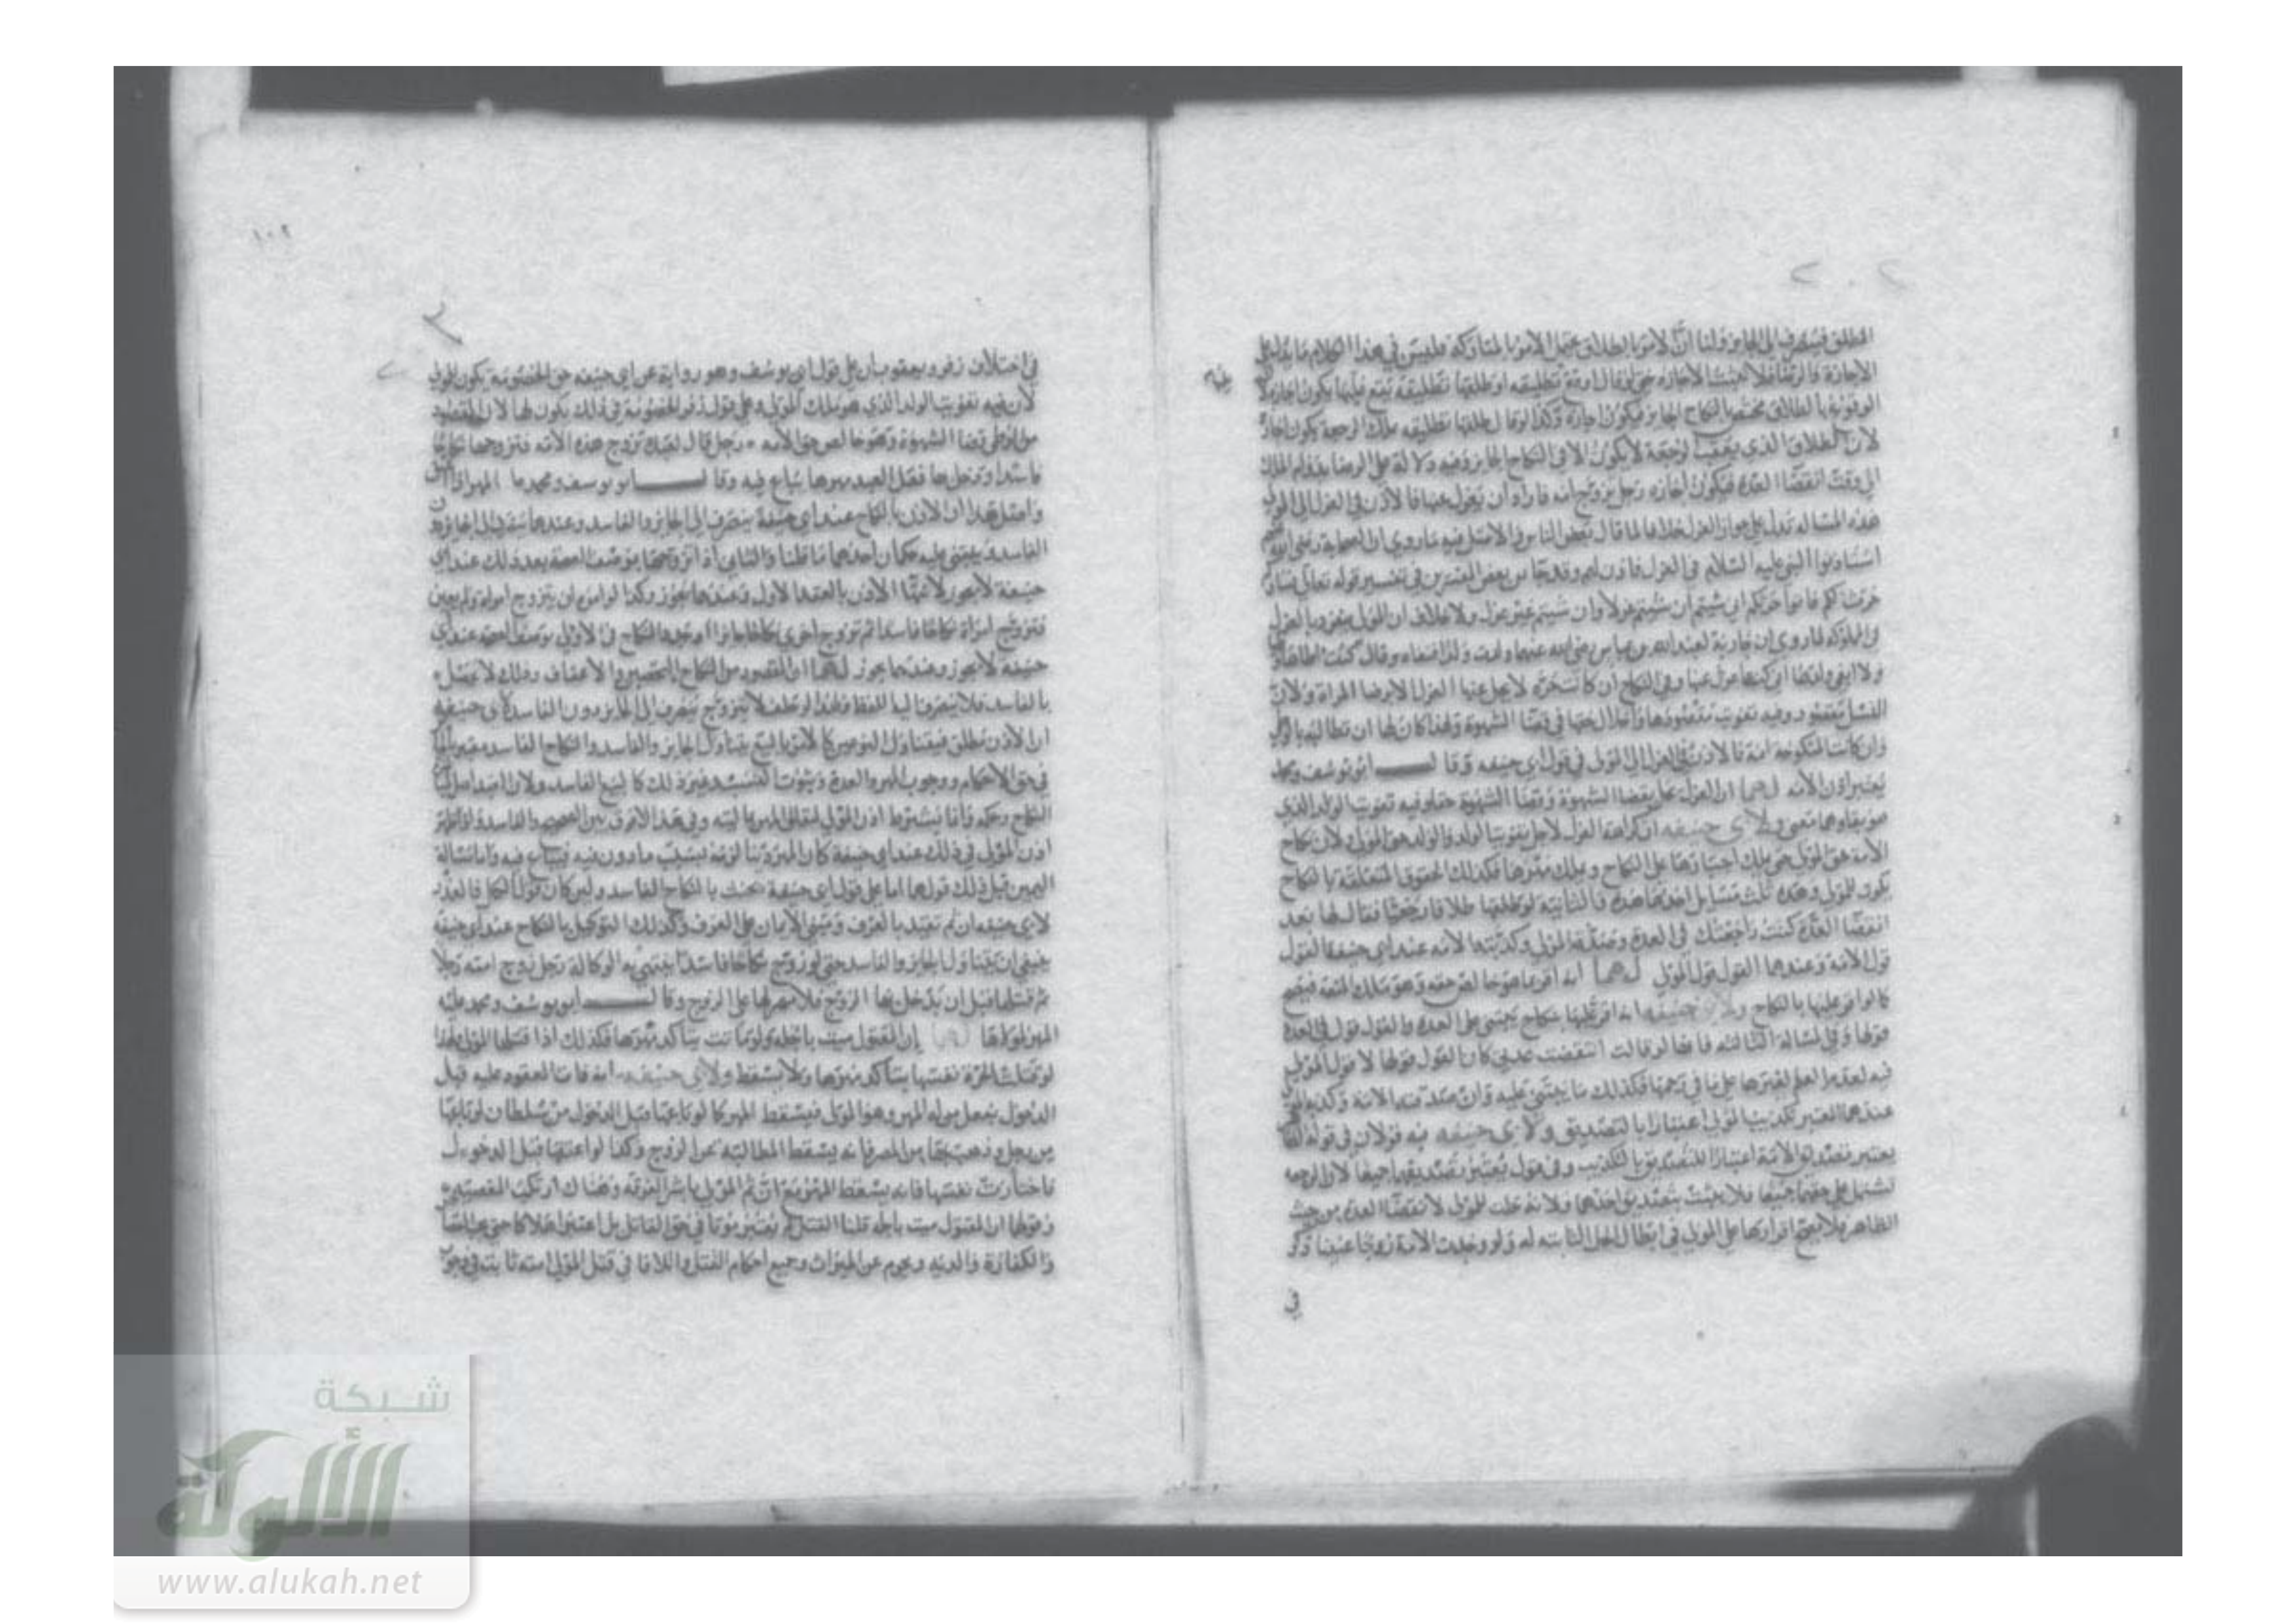 المطلق فينصرف الى الجايز ولنا ان الامر بالطلاق يحتمل الامر بالمتاركة فليس في هذا الكلام ما يدل على
الاجازة والرضا فلا تثبت الاجازة حتى لو قال اوقع تطليقه او طلقها تطليقة تقع عليها يكون اجازة لان
الوقوع بالطلاق مختص بالنكاح الجايز فيكون اجازة وكذا لو قال طلقها تطليقه تملك الرجعة يكون اجازة
لان الطلاق الذي يعقب الرجعة لا يكون الا في النكاح الجايز وفيه دلالة على الرضا بدوام الملك
الى وقت انقضا العدة فيكون اجازه رجل تزوج امه فاراد ان يعزل عنها فالاذن في العزل الى المولى
هذه المسالة تدل على جواز العزل خلافا لما قال بعض الناس والاصل فيه ما روي ان الصحابة رضي الله عنهم
استاذنوا النبي عليه السلام في العزل فاذن لهم وقد جا من بعض المفسرين في تفسير قوله تعالى نساؤكم
حرث لكم فاتوا حرثكم انى شيتم ان شيتم عزلا وان شيتم غير عزل ولا خلاف ان المولى ينفرد بالعزل
في المملوكه لما روي ان جارية لعبد الله بن عباس رضي الله عنهما ولدت ولدا فنفاه وقال كنت اطاها
ولا ابغي ولدها اي كنت اعزل عنها وفي النكاح ان كانت حرة لا يحل عنها العزل الا برضا المراة ولان
النسل مقصود وفيه تفويت مقصودها واخلال بحقها في قضا الشهوة ولهذا كان لها ان تطالبه بالوطي
وان كانت المنكوحة امة فالاذن في العزل الى المولى في قول ابي حنيفه وقال ابو يوسف ومحمد
يعتبر اذن الامه لهما ان العزل يخل بقضا الشهوة وقضا الشهوة حقها وفيه تفويت الولد الذي
هو بقاوها معنى ولابي حنيفه ان كراهة العزل لاجل تفويت الولد والولد حق المولى لان نكاح
الامة حق المولى حتى يملك اجبارها على النكاح ويملك مهرها فكذلك الحقوق المتعلقة بالنكاح
يكون للمولى وهذه ثلث مسايل احديها هذه والثانية لو طلقها طلاقا رجعيا فقال لها بعد
انقضا العدة كنت راجعتك في العدة وصدقه المولى وكذبته الامه عند ابي حنيفه القول
قول الامة وعندهما القول قول المولى لهما انه اقر بما هو خالص حقه وهو ملك المتعة فيصح
كما لو اقر عليها بالنكاح ولابي حنيفه انه اقر عليها بنكاح يبتني على العدة والقول قول في العدة
قولها وفي المسالة الثالثه فانها لو قالت انقضت عدتي كان القول قولها لا قول المولى
فيه لعدم العلم لغيرها على ما في رحمها فكذلك ما يبتني عليه وان صدقته الامة وكذبه المولى
عندهما المعتبر تكذيب المولى اعتبارا بالتصديق ولابي حنيفه فيه قولان في قول
يعتبر تصديق الامة اعتبارا للتصديق بالتكذيب وفي قول يعتبر تصديقهما جميعا لان الرجعة
تشتمل على حقهما جميعا فلا يثبت بتصديق احدهما ولانه خلت للمولى لانقضا العدة من حيث
الظاهر فلا يصح اقرارها على المولى في ابطال الحل الثابت له ولو وجدت الامة زوجها عنينا ذكر
في
١٠٢
في اختلاف زفر ويعقوب ان على قول ابي يوسف وهو رواية عن ابي حنيفه حق الخصومة يكون للمولى
لان فيه تفويت الولد الذي هو ملك المولى وعلى قول زفر الخصومة في ذلك يكون لها لان المقصود
من الوطي قضا الشهوة وهو خالص حق الامه رجل قال لعبده تزوج هذه الامه فتزوجها نكاحا
فاسدا ودخل بها فعلى العبد مهرها يباع فيه وقال ابو يوسف ومحمد المهر اذا اعتق
واصل هذا ان الاذن بالنكاح عند ابي حنيفة ينصرف الى الجايز والفاسد وعندهما ينصرف الى الجايز دون
الفاسد يبتني عليه حكمان احدهما ما قلنا والثاني اذا تزوجها بوصف الصحة بعد ذلك عند ابي
حنيفة لا يجوز لانتها الاذن بالعقد الاول وعندهما يجوز وكذا لو امره ان يتزوج امراة ولم يعين
فتزوج امراة نكاحا فاسدا ثم تزوج اخرى نكاحا جايزا او جدد النكاح في الاولى بوصف الصحه عند ابي
حنيفة لا يجوز وعندهما يجوز لهما ان المقصود من النكاح التحصين والاعفاف وذلك لا يحصل
بالفاسد فلا ينصرف اليه اللفظ ولهذا لو حلف لا يتزوج ينصرف الى الجايز دون الفاسد لابي حنيفه
ان الاذن مطلق فيتناول النوعين كالامر بالبيع يتناول الجايز والفاسد والنكاح الفاسد معتبر
في حق الاحكام ووجوب المهر والعدة وثبوت النسب وغير ذلك كالبيع الفاسد ولان العبد اهل
النكاح وحكمه وانما يشترط اذن المولى لتعلق المهر بماليته وفي هذا لا فرق بين الصحيح والفاسد
اذن المولى في ذلك عند ابي حنيفة كان المهر دينا لزمه بسبب ماذون فيه فيباع فيه واما مسالة
اليمين قيل ذلك قولهما اما على قول ابي حنيفة يحنث بالنكاح الفاسد ولين كان قول الكل فالعذر
لابي حنيفه ان ثم تقيد بالعرف ومبنى الايمان على العرف وكذلك التوكيل بالنكاح عند ابي حنيفه
ينبغي ان يتناول الجايز والفاسد حتى لو زوج نكاحا فاسدا ينتهي به الوكالة رجل زوج امته رجلا
ثم قتلها قبل ان يدخل بها الزوج فلا مهر لها على الزوج وقال ابو يوسف ومحمد عليه
المهر لمولاها لهما ان المقتول ميت باجله ولو ماتت يتاكد مهرها فكذلك اذا قتلها المولى ولهذا
لو قتلت الحرة نفسها يتاكد مهرها ولا يسقط ولابي حنيفه انه فات المعقود عليه قبل
الدخول بفعل من له المهر وهو المولى فيسقط المهر كما لو باعها قبل الدخول من سلطان او باعها
من رجل وذهب بها من المصر فانه يسقط المطالبة عن الزوج وكذا لو اعتقها قبل الدخول
فاختارت نفسها فانه يسقط المهر مع ان ثم المولى باشر القربة وهناك ارتكب المعصية
وقولهما ان المقتول ميت باجله قلنا القتل لم يعتبر موتا في حق القاتل بل اعتبر اهلاكا حتى يجب القصاص
والكفارة والدية ويحرم عن الميراث وجميع احكام القتل والاتلاف في قتل المولى امته ثابتة في وجوب
شبكة
الألوكة
www.alukah.net